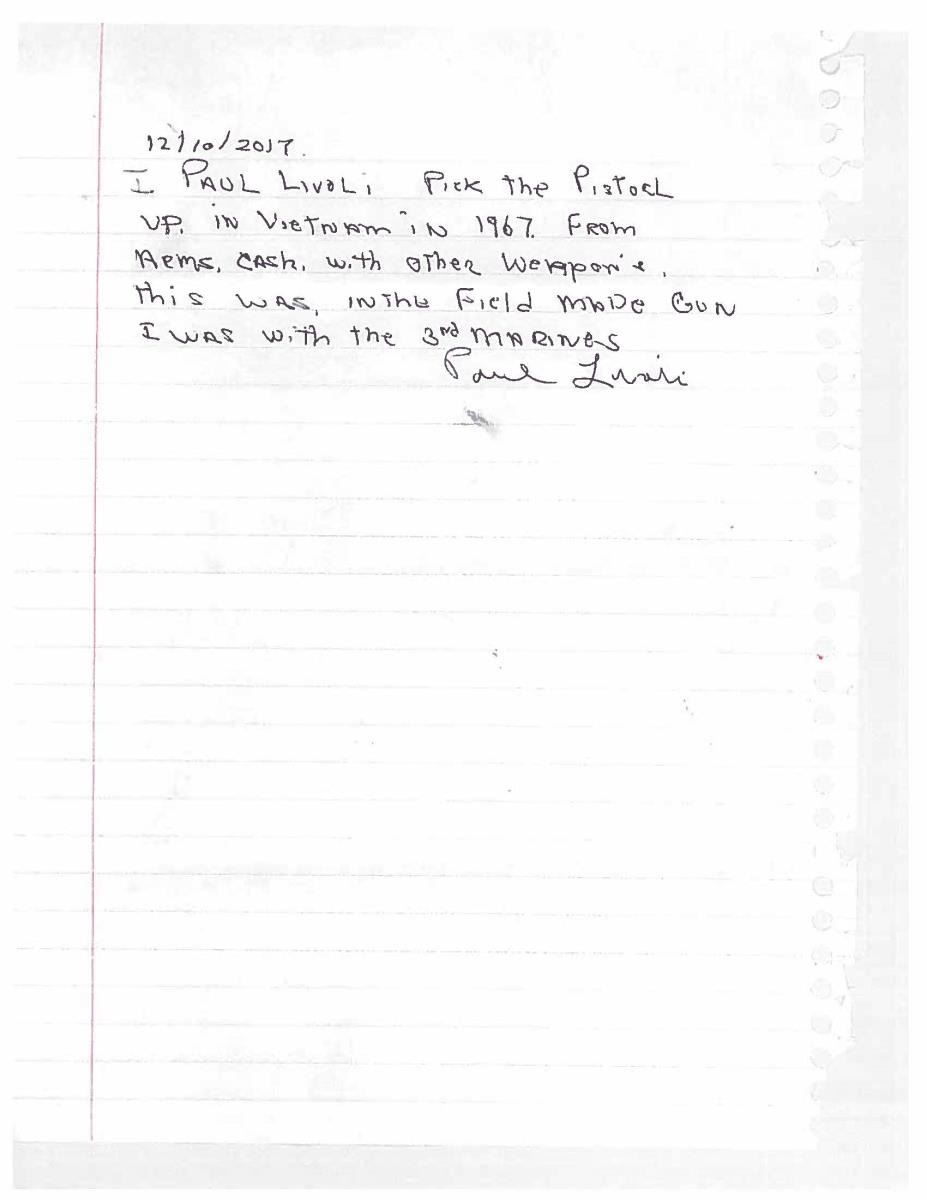 12/10/2017.
I PAUL Livoli Pick the Pistoel
UP. in Vietnam in 1967. From
Aems, CASh, with other Weapon's.
this WAS, IN The Field MADE GUN
I WAS with the 3rd MARINES
Paul Livoli